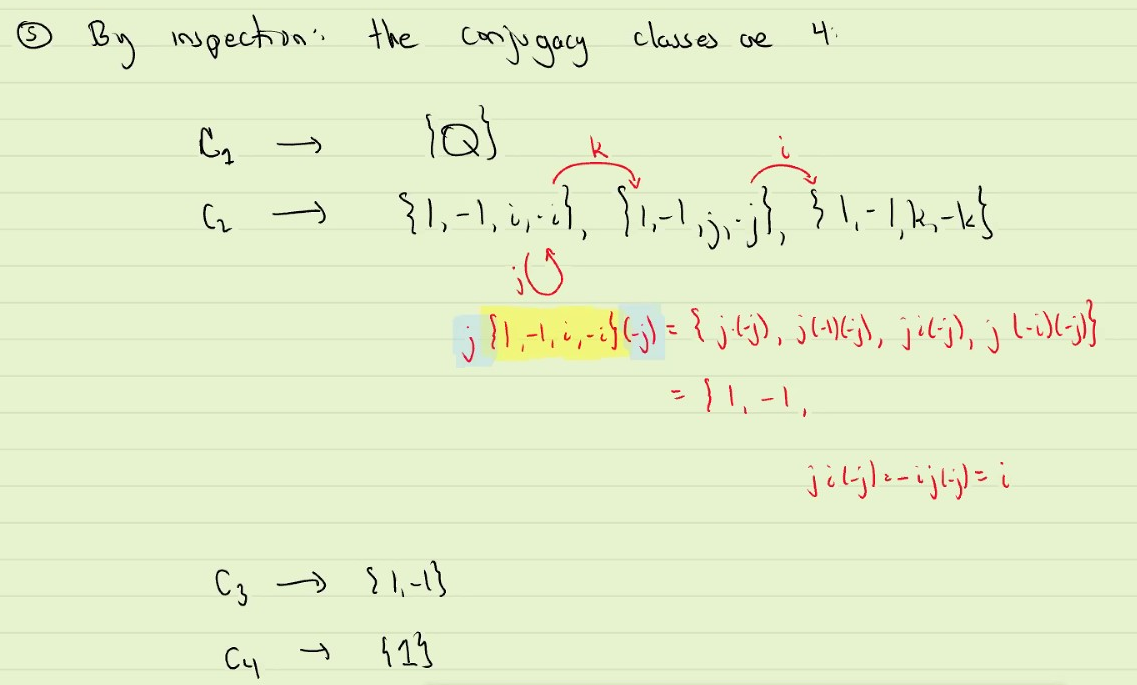 ⑤ By inspection: the conjugacy classes are 4:
C₁ → {Q}
k i
C₂ → {1, -1, i, -i}, {1, -1, j, -j}, {1, -1, k, -k}
j
j {1, -1, i, -i} (-j) = { j·(-j), j(-1)(-j), j i(-j), j (-i)(-j)}
= { 1, -1,
j i (-j) = - i j (-j) = i
C₃ → {1, -1}
C₄ → {1}